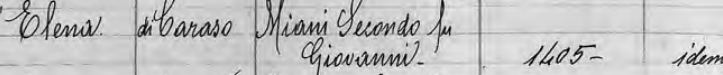 Elena. di Caraso Miani Secondo fu
Giovanni- 1405- idem